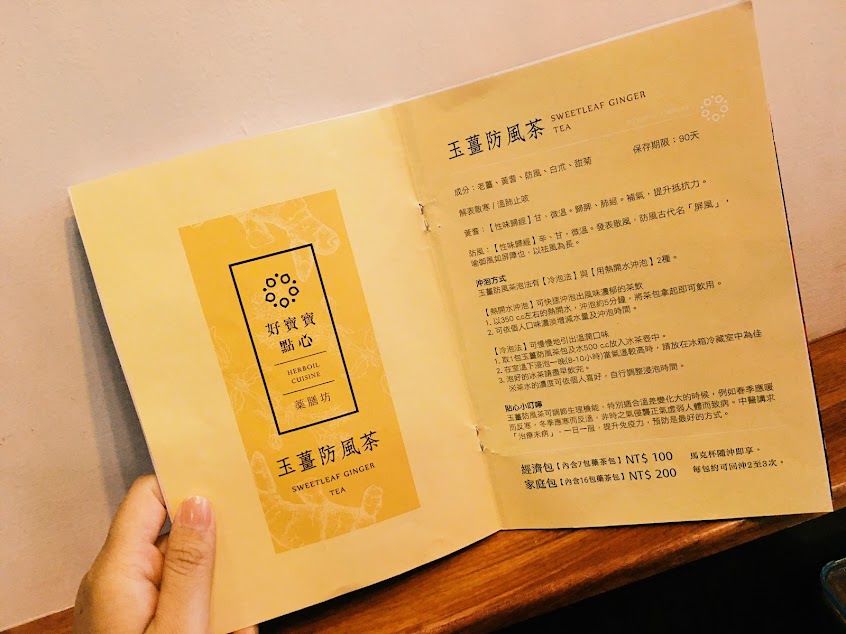 好寶寶
點心
HERBOIL
CUISINE
藥膳坊
玉薑防風茶
SWEETLEAF GINGER
TEA
玉薑防風茶 SWEETLEAF GINGER
TEA
成分:老薑、黃耆、防風、白朮、甜菊
保存期限:90天
解表散寒 / 溫肺止咳
黃耆:【性味歸經】甘,微溫。歸脾、肺經。補氣,提升抵抗力。
防風:【性味歸經】辛、甘,微溫。發表散風,防風古代名「屏風」,
喻御風如屏障也,以祛風為長。
沖泡方式
玉薑防風茶泡法有【冷泡法】與【用熱開水沖泡】2種。
【熱開水沖泡】可快速沖泡出風味濃郁的茶飲
1. 以350 c.c左右的熱開水,沖泡約5分鐘,將茶包拿起即可飲用。
2. 可依個人口味濃淡增減水量及沖泡時間。
【冷泡法】可慢慢地引出溫潤口味
1. 取1包玉薑防風茶包及水500 c.c放入冰茶壺中。
2. 在室溫下浸泡一晚(8-10小時)當氣溫較高時,請放在冰箱冷藏室中為佳
3. 泡好的冰茶請盡早飲完。
※茶水的濃度可依個人喜好,自行調整浸泡時間。
貼心小叮嚀
玉薑防風茶可調節生理機能,特別適合溫差變化大的時候,例如春季應暖
而反寒,冬季應寒而反溫,非時之氣侵襲正氣虛弱人體而致病。中醫講求
「治療未病」,一日一服,提升免疫力,預防是最好的方式。
經濟包【內含7包藥茶包】NT$ 100 馬克杯隨沖即享。
家庭包【內含16包藥茶包】NT$ 200 每包約可回沖2至3次。